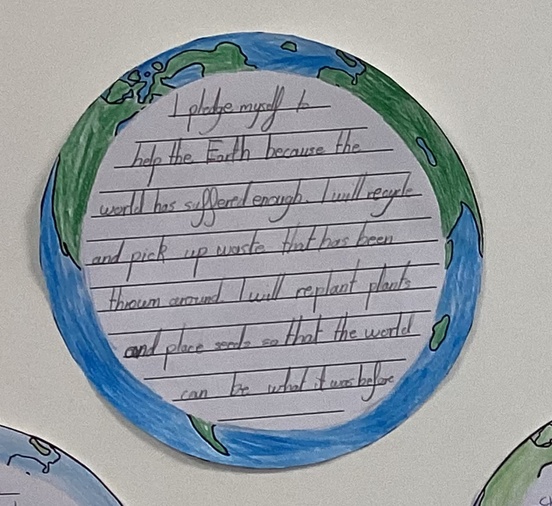 I pledge myself to
help the Earth because the
world has suffered enough. I will recycle
and pick up waste that has been
thrown around I will replant plants
and place seeds so that the world
can be what it was before